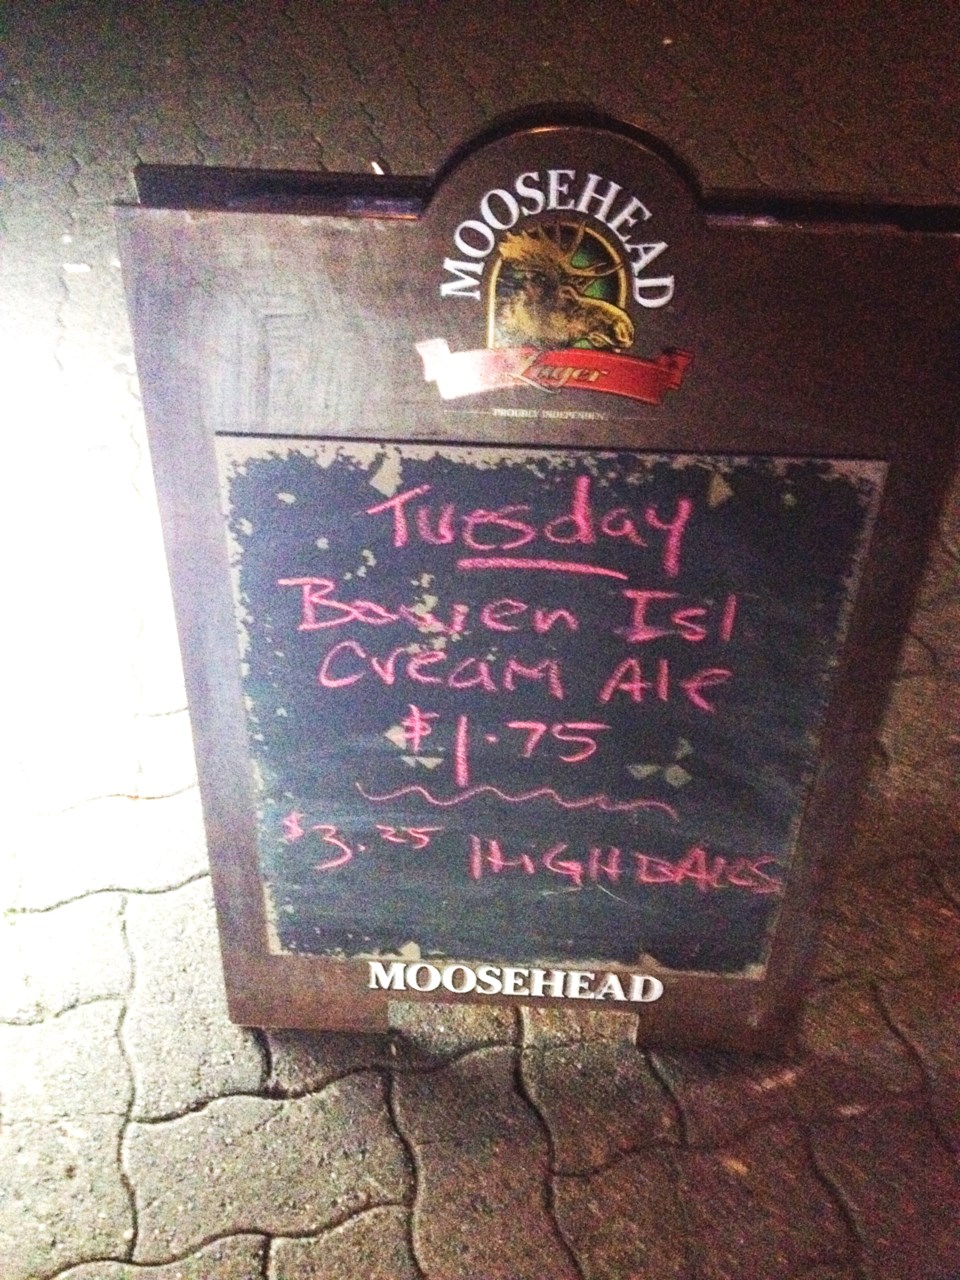 MOOSEHEAD
Lager
PROUDLY INDEPENDENT
Tuesday
Bowen Isl
Cream Ale
$1.75
$3.25 HIGHBALLS
MOOSEHEAD